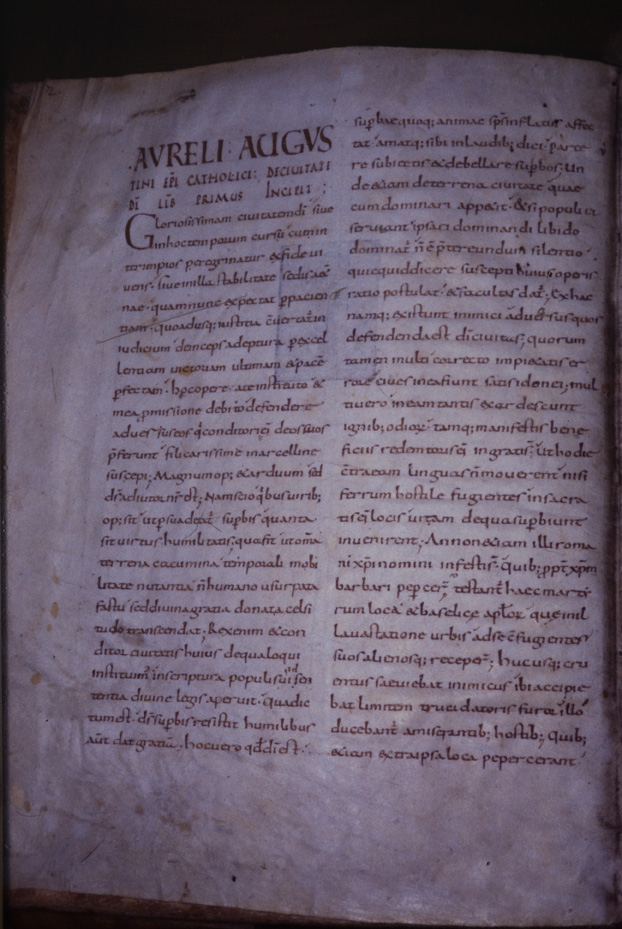 .AVRELI· AUGVS
TINI EPI CATHOLICI: DECIUITATE
DI LIB PRIMUS INCIPIT;
Gloriosissimam ciuitatem di siue
inhoc temporum cursu cum in
ter impios peregrinatur & fide ui
uens· siue in illa stabilitate sedis aet
nae· quam nunc expectat p pacien
tiam· quoadusq; iustitia cuertat in
iudicium deinceps adeptura p excel
lentiam uictoriam ultimam & pace
pfectam· hoc opere· a te instituto &
mea pmissione debito defendere
aduersus eos q conditori ei deos suos
pferunt· fili carissime marcelline
suscepi; Magnum op; & arduum sed
ds adiutor nr est; Nam scio qbus uirib;
op; sit ut psuadeat supbis quanta
sit uirtus humilitatis; qua fit ut oma
terrena cacumina temporali mobi
litate nutantia n humano usurpata
fastu sed diuina gratia donata celsi
tudo transcendat· Rex enim & con
ditor ciuitatis huius de qua loqui
instituim in scriptura populi sui sen
tentia diuine legis aperuit· qua dic
tum est· ds supbis resistit humilibus
aut dat gratia· hoc uero qd di est·
supbae quoq; animae sps inflatus affec
tat· amatq; sibi in laudib; dici· parce
re subiectis & debellare supbos· Un
de & iam de terrena ciuitate quae
cum dominari appetit· & si populi
seruiant ipsa ei dominandi libido
dominat n e ptereundum silentio
quicquid dicere suscepti huius operis
ratio postulat· & facultas dat; Ex hac
namq; existunt inimici aduersus quos
defendenda est di ciuitas; quorum
tamen multi correcto impietatis er
rore ciues in ea fiunt satis idonei; mul
ti uero in eam tantis exardescunt
ignib; odior· tamq; manifestis bene
ficiis redemtoris ei ingrati st; ut hodie
c tra eam linguas n mouerent nisi
ferrum hostile fugientes in sacra
tis ei locis uitam de qua supbiunt
inuenirent; An non & iam illi roma
ni xpi nomini infesti st· quib; ppt xpm
barbari peperc; testant haec marti
rum loca & basilice aplor que in il
la uastatione urbis ad se c fugientes
suos alienosq; recepe; huc usq; cru
entus saeuiebat inimicus ibi accipie
bat limitem trucidatoris furor· illo
ducebant a miserantib; hostib; quib;
&iam extra ipsa loca pepercerant